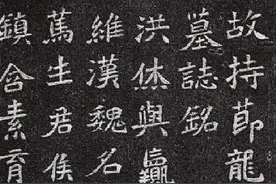 故持莭龍
墓誌銘
洪烋與
維漢魏名
篤生君侯
鎮含素育